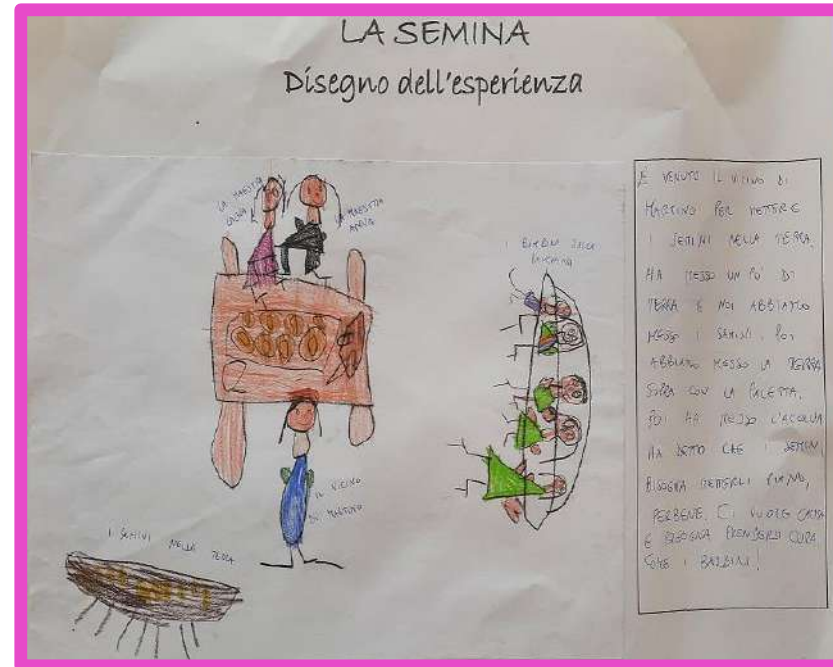 LA SEMINA
Disegno dell'esperienza
LA MAESTRA
LA MAESTRA
I BAMBINI SULLA
PANCHINA
IL VICINO
DI MARTINO
I SEMINI NELLA TERRA
È VENUTO IL VICINO DI
MARTINO PER METTERE
I SEMINI NELLA TERRA.
HA MESSO UN PO' DI
TERRA E NOI ABBIAMO
MESSO I SEMINI. POI
ABBIAMO MESSO LA TERRA
SOPRA CON LA PALETTA.
POI HA MESSO L'ACQUA
HA DETTO CHE I SEMINI
BISOGNA METTERLI PIANO,
PERBENE. CI VUOLE CALMA
E BISOGNA PRENDERSI CURA
COME I BAMBINI!